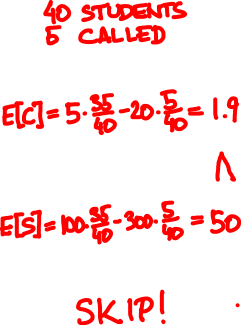 40 STUDENTS
5 CALLED
E[C]=5·35/40-20·5/40=1.9
∧
E[S]=100·35/40-300·5/40=50
SKIP!